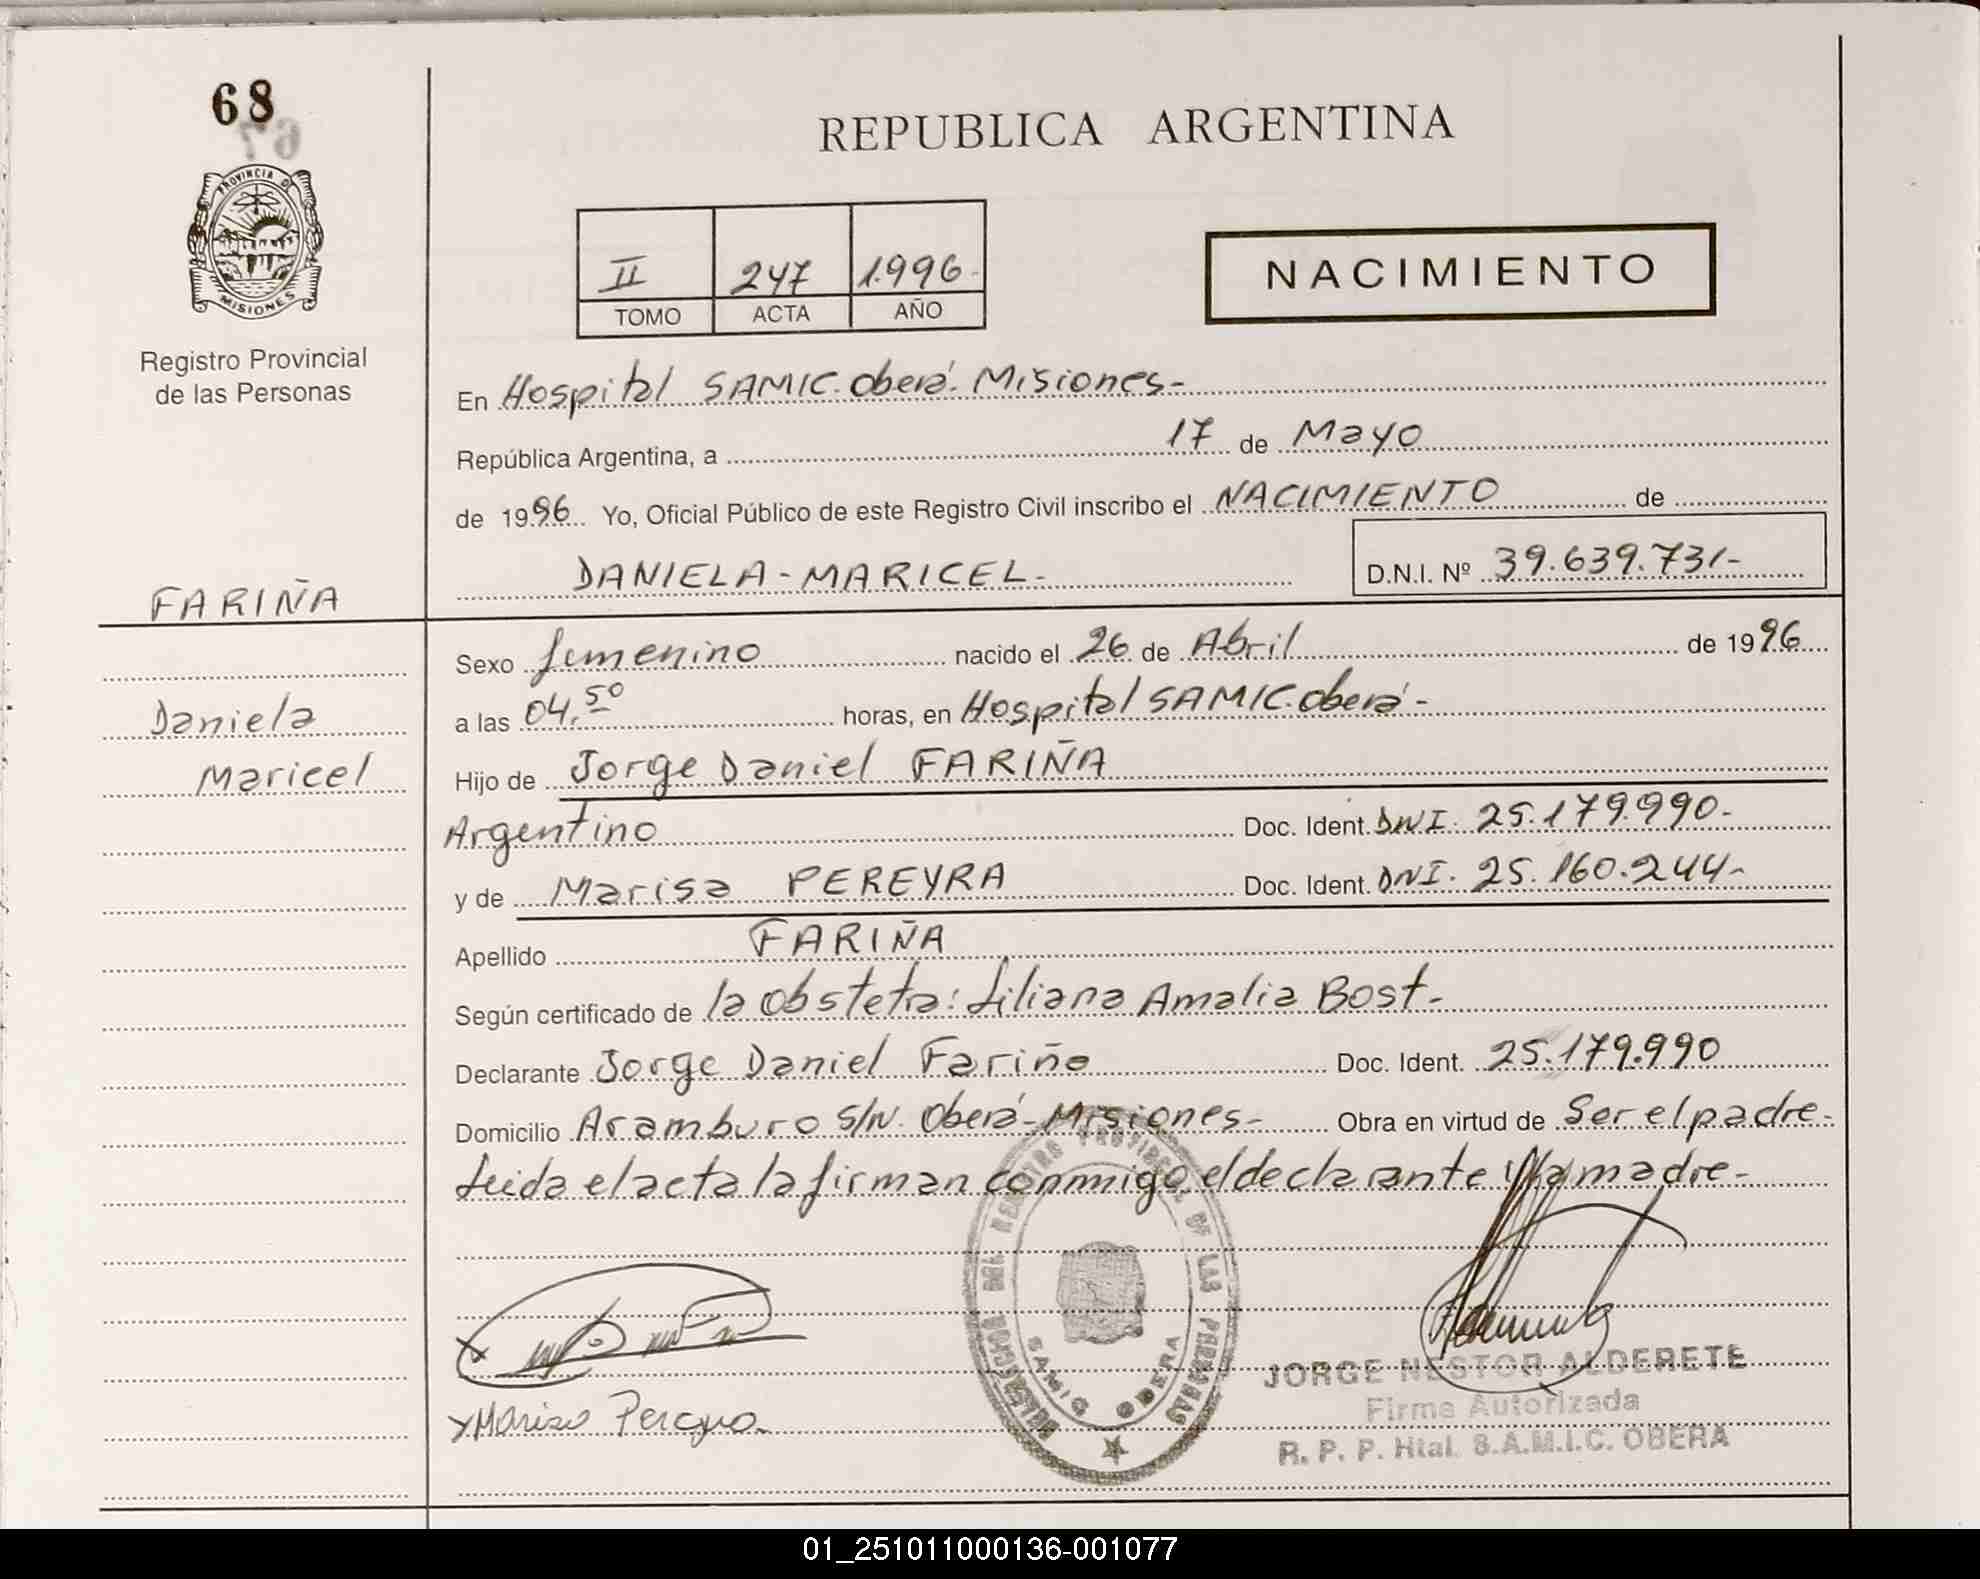 68
67
PROVINCIA DE
MISIONES
Registro Provincial
de las Personas
REPUBLICA ARGENTINA
II 247 1.996-
TOMO ACTA AÑO
NACIMIENTO
En Hospital SAMIC. Oberá. Misiones-
República Argentina, a 17 de Mayo
de 1996 Yo, Oficial Público de este Registro Civil inscribo el NACIMIENTO de
DANIELA-MARICEL- D.N.I. Nº 39.639.731-
FARIÑA
Daniela
Maricel
Sexo femenino nacido el 26 de Abril de 1996
a las 04.50 horas, en Hospital SAMIC. Oberá-
Hijo de Jorge Daniel FARIÑA
Argentino Doc. Ident. DNI. 25.179.990-
y de Marisa PEREYRA Doc. Ident. DNI. 25.160.244-
Apellido FARIÑA
Según certificado de la obstetra: Liliana Amalia Bost-
Declarante Jorge Daniel Fariña Doc. Ident. 25.179.990
Domicilio Aramburo S/N. Oberá-Misiones- Obra en virtud de Ser el padre-
Leida el acta la firman conmigo, el declarante y la madre-
DELEGACION DEL REGISTRO PROVINCIAL DE LAS PERSONAS
SAMIC OBERA
x Marisa Pereyra
JORGE NESTOR ALDERETE
Firma Autorizada
R. P. P. Htal. S.A.M.I.C. OBERA
01_251011000136-001077